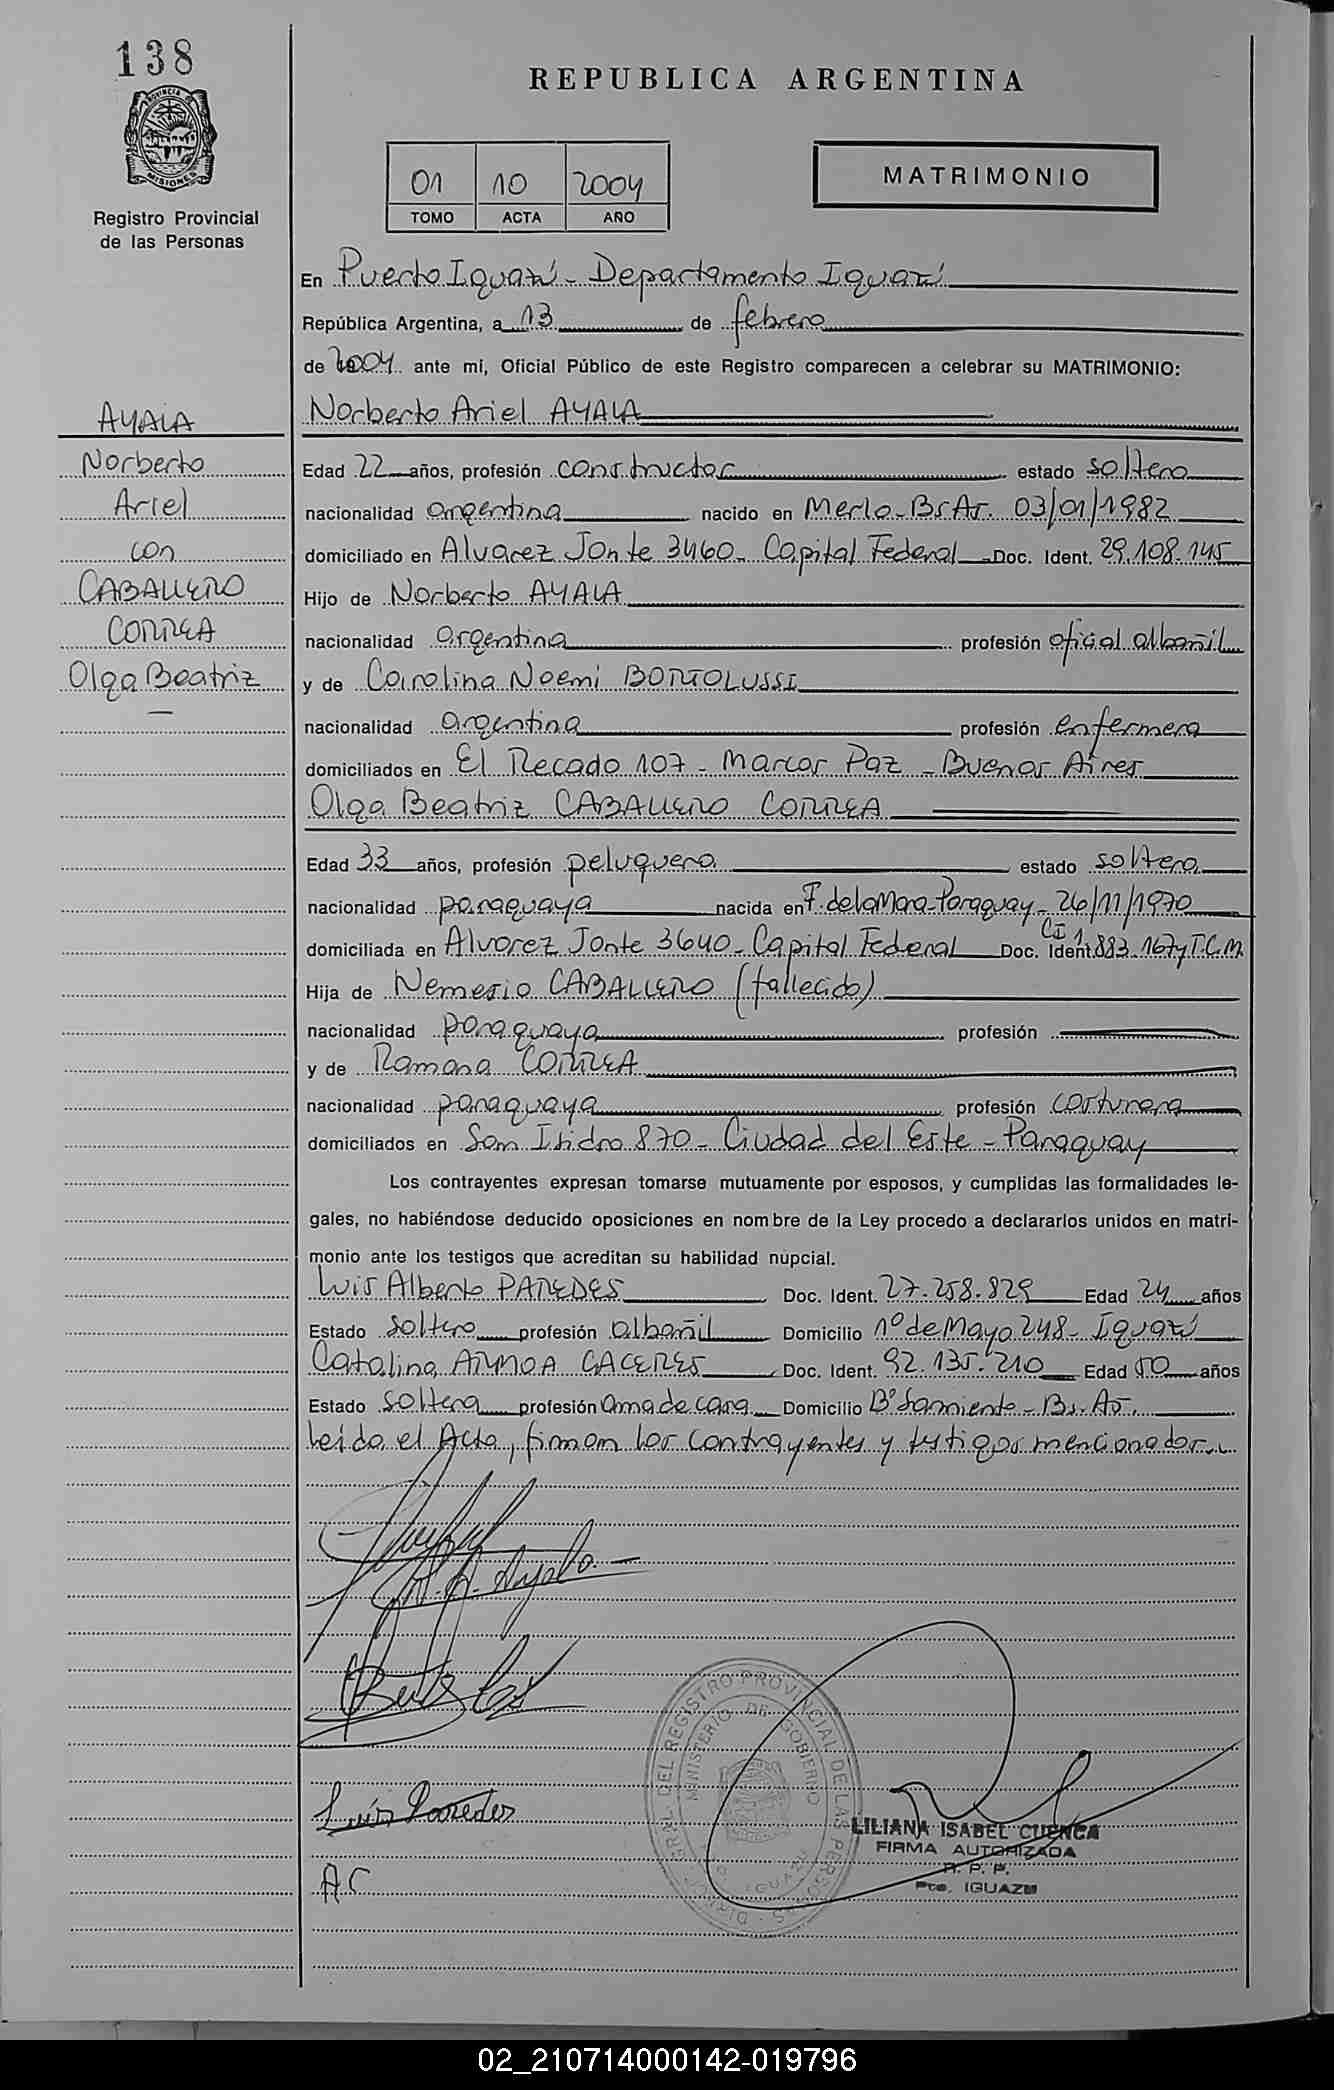 138
REPUBLICA ARGENTINA
PROVINCIA DE
MISIONES
01 10 2004
TOMO ACTA AÑO
MATRIMONIO
Registro Provincial
de las Personas
En Puerto Iguazú - Departamento Iguazú
República Argentina, a 13 de febrero
de 2004 ante mí, Oficial Público de este Registro comparecen a celebrar su MATRIMONIO:
AYALA
Norberto
Ariel
con
CABALLERO
CORREA
Olga Beatriz
Norberto Ariel AYALA
Edad 22 años, profesión constructor estado soltero
nacionalidad argentina nacido en Merlo-Bs.As. 03/01/1982
domiciliado en Alvarez Jonte 3460- Capital Federal Doc. Ident. 29.108.145
Hijo de Norberto AYALA
nacionalidad argentina profesión oficial albañil
y de Carolina Noemi BORTOLUSSI
nacionalidad argentina profesión enfermera
domiciliados en El Recado 107 - Marcos Paz - Buenos Aires
Olga Beatriz CABALLERO CORREA
Edad 33 años, profesión peluquera estado soltera
nacionalidad paraguaya nacida en F. de la Mora-Paraguay- 26/11/1970
domiciliada en Alvarez Jonte 3640- Capital Federal Doc. Ident. CI 1.883.167 y T.C.M.
Hija de Nemesio CABALLERO (fallecido)
nacionalidad paraguaya profesión
y de Ramona CORREA
nacionalidad paraguaya profesión costurera
domiciliados en San Isidro 870- Ciudad del Este - Paraguay
Los contrayentes expresan tomarse mutuamente por esposos, y cumplidas las formalidades le-
gales, no habiéndose deducido oposiciones en nombre de la Ley procedo a declararlos unidos en matri-
monio ante los testigos que acreditan su habilidad nupcial.
Luis Alberto PAREDES Doc. Ident. 27.258.829 Edad 24 años
Estado soltero profesión albañil Domicilio 1º de Mayo 248- Iguazú
Catalina ARMOA CACERES Doc. Ident. 92.135.210 Edad 50 años
Estado soltera profesión ama de casa Domicilio Bº Sarmiento - Bs. As.
Leída el Acta, firman los contrayentes y testigos mencionados..
A. Ayala.
Luis Paredes
AC
DIREC. GRAL. DEL REGISTRO PROVINCIAL DE LAS PERSONAS
MINISTERIO DE GOBIERNO
IGUAZU
LILIANA ISABEL CUENCA
FIRMA AUTORIZADA
R. P. P.
Pto. IGUAZU
02_210714000142-019796